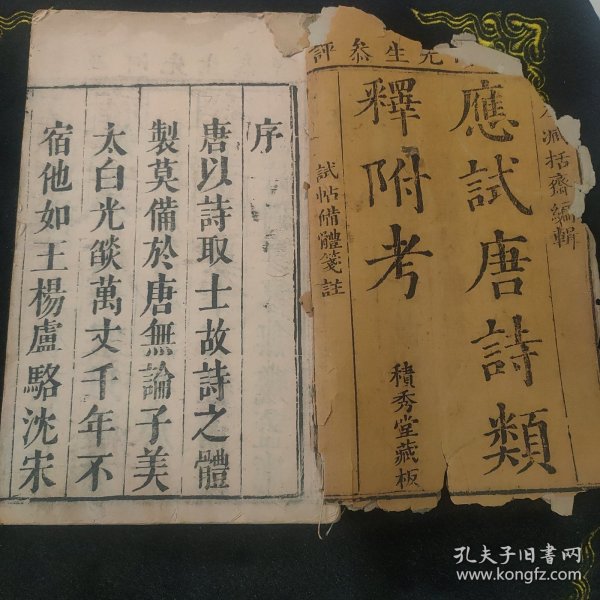 先生叅評
臧括齋編輯
應試唐詩類
釋附考
試帖備體箋註
積秀堂藏板
序
唐以詩取士故詩之體
製莫備於唐無論子美
太白光燄萬丈千年不
宿他如王楊盧駱沈宋
孔夫子旧书网
www.kongfz.com